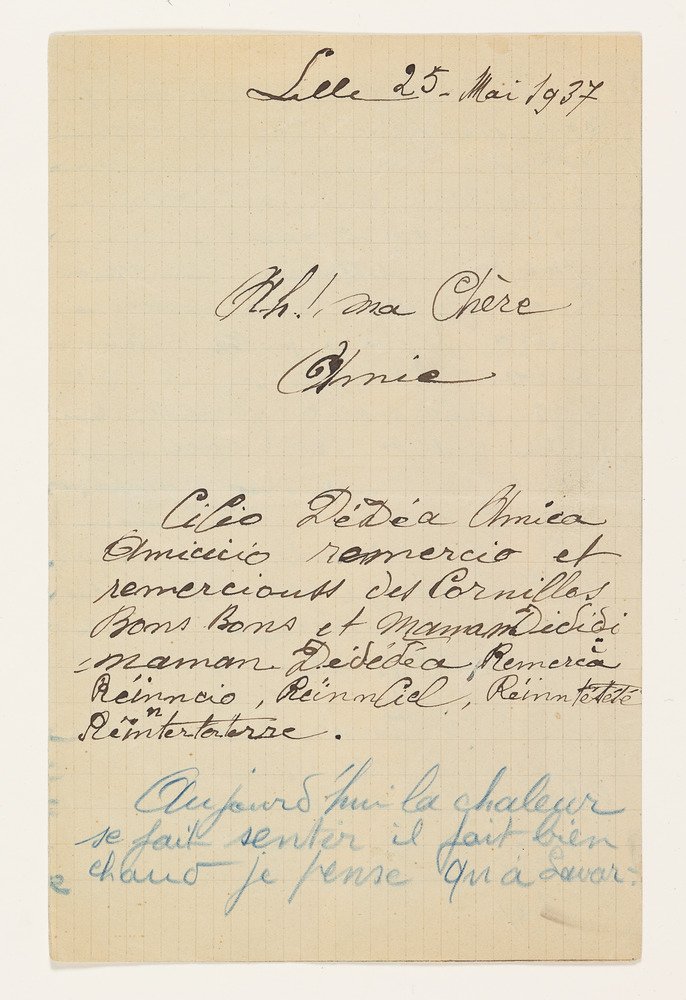 Lille 25 - Mai 1937
Ah! ma Chère
Amie
CiCio DéDéa Amica
Amicicio remercio et
remerciouss des Cornillos
Bons Bons et Maman Dididi
maman Dédédéa, Remercia
Réinncio, RéinnCiel, Réinntétété
Réinnterterterre.
Aujourd'hui la chaleur
se fait sentir il fait bien
chaud je pense qu'a Lavar-